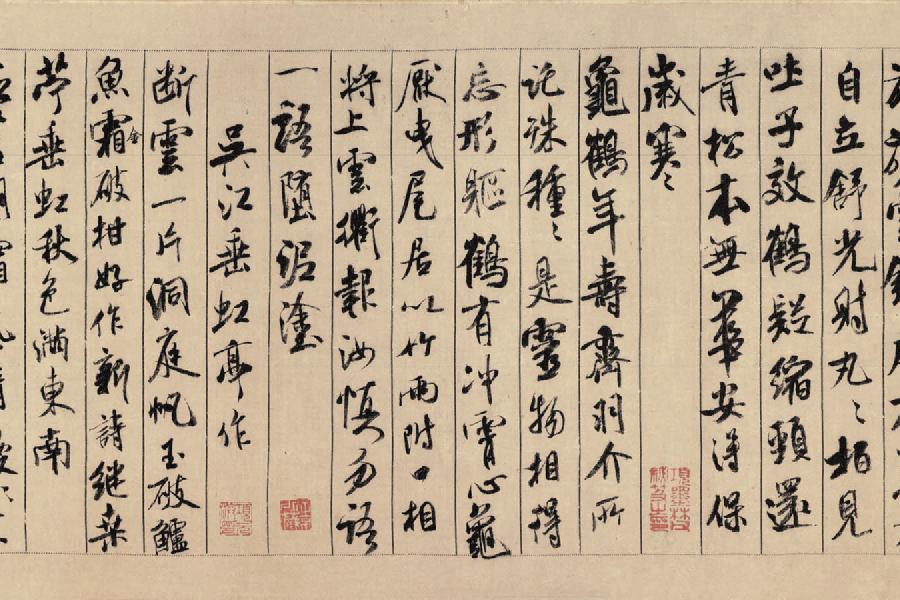 自立舒光射丸〻柏見
吐子效鶴疑縮頸還
青松本無華安得保
歲寒
龜鶴年壽齊羽介所
託殊種〻是靈物相得
忘形軀鶴有沖霄心龜
厭曳尾居以竹兩附口相
將上雲衢報汝慎勿語
一語墮泥塗
吳江垂虹亭作
断雲一片洞庭帆玉破鱸
魚霜金破柑好作新詩繼桑
苧垂虹秋色滿東南